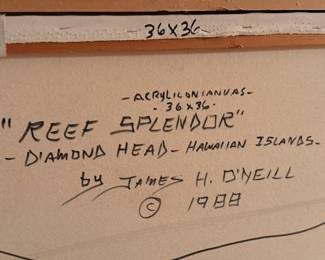 36X36
- ACRYLIC ON CANVAS -
- 36X36 -
"REEF SPLENDOR"
- DIAMOND HEAD - HAWAIIAN ISLANDS -
by JAMES H. O'NEILL
© 1988